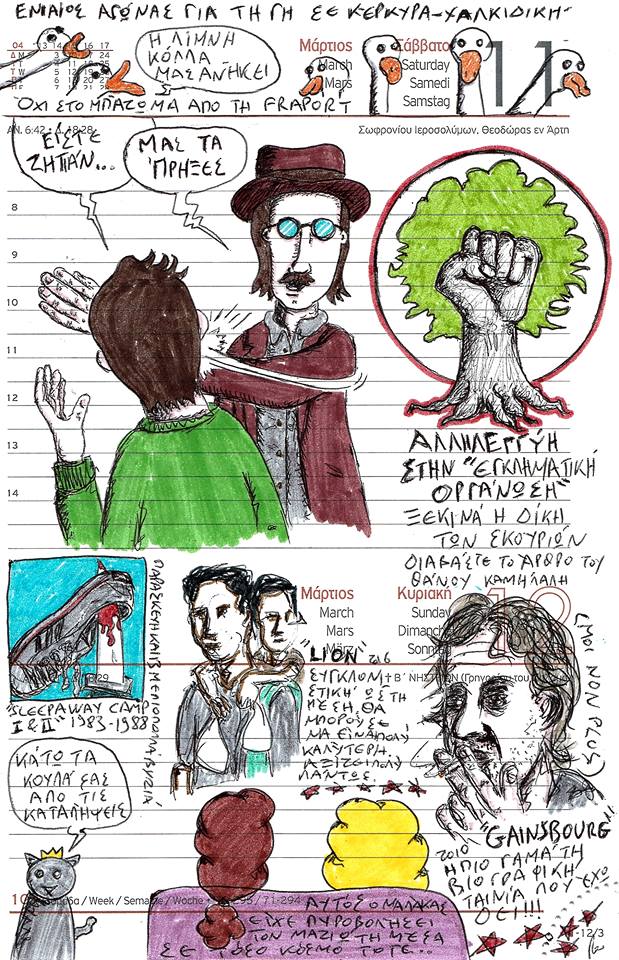 ΕΝΙΑΙΟΣ ΑΓΩΝΑΣ ΓΙΑ ΤΗ ΓΗ ΣΕ ΚΕΡΚΥΡΑ-ΧΑΛΚΙΔΙΚΗ
04 13 14 15 16 17
Η ΛΙΜΝΗ
ΚΟΛΛΑ
ΜΑΣ ΑΝΗΚΕΙ
Μάρτιος
March
Mars
Σάββατο
Saturday
Samedi
Samstag
11
ΌΧΙ ΣΤΟ ΜΠΑΖΩΜΑ ΑΠΟ ΤΗ FRAPORT
ΑΝ. 6:42 - Δ. 18:28
Σωφρονίου Ιεροσολύμων, Θεοδώρας εν Άρτη
ΕΙΣΤΕ
ΖΗΤΑΝ...
ΜΑΣ ΤΑ
ΠΡΗΞΕΣ
8
9
10
11
12
13
14
ΑΛΛΗΛΕΓΓΥΗ
ΣΤΗΝ "ΕΓΚΛΗΜΑΤΙΚΗ
ΟΡΓΑΝΩΣΗ"
ΞΕΚΙΝΑ Η ΔΙΚΗ
ΤΩΝ ΣΚΟΥΡΙΩΝ
ΔΙΑΒΑΣΤΕ ΤΟ ΆΡΘΡΟ ΤΟΥ
ΘΑΝΟΥ ΚΑΜΗΛΑΛΗ
Μάρτιος
March
Mars
März
Κυριακή
Sunday
Dimanche
Sonntag
12
"SLEEPAWAY CAMP
I & II" 1983-1988
ΠΑΡΑΣΚΕΥΗ ΚΑΙ 13 ΜΕ
"LION" 2016
ΣΥΓΚΛΟΝΙ
ΣΤΙΚΗ ΩΣ ΤΗ
ΜΕΣΗ, ΘΑ
ΜΠΟΡΟΥΣΕ
ΝΑ ΕΙΝΑΙ ΠΟΛΥ
ΚΑΛΥΤΕΡΗ.
ΑΞΙΖΕΙ ΠΟΛΥ
ΠΑΝΤΩΣ
Β΄ ΝΗΣΤΕΙΩΝ
(MOI NON PLUS)
"GAINSBOURG"
2010 Η ΠΙΟ ΓΑΜΑΤΗ
ΒΙΟΓΡΑΦΙΚΗ
ΤΑΙΝΙΑ ΠΟΥ ΕΧΩ
ΔΕΙ!!!
ΚΑΤΩ ΤΑ
ΚΟΥΛΑ ΣΑΣ
ΑΠΟ ΤΙΣ
ΚΑΤΑΛΗΨΕΙΣ
Week / Semaine / Woche
71-294
ΑΥΤΟΣ Ο ΜΑΛΑΚΑΣ
ΕΙΧΕ ΠΥΡΟΒΟΛΗΣΕΙ
ΤΟΝ ΜΑΖΙΩΤΗ ΜΕΣΑ
ΣΕ ΤΟΣΟ ΚΟΣΜΟ ΤΟΤΕ..
12/3